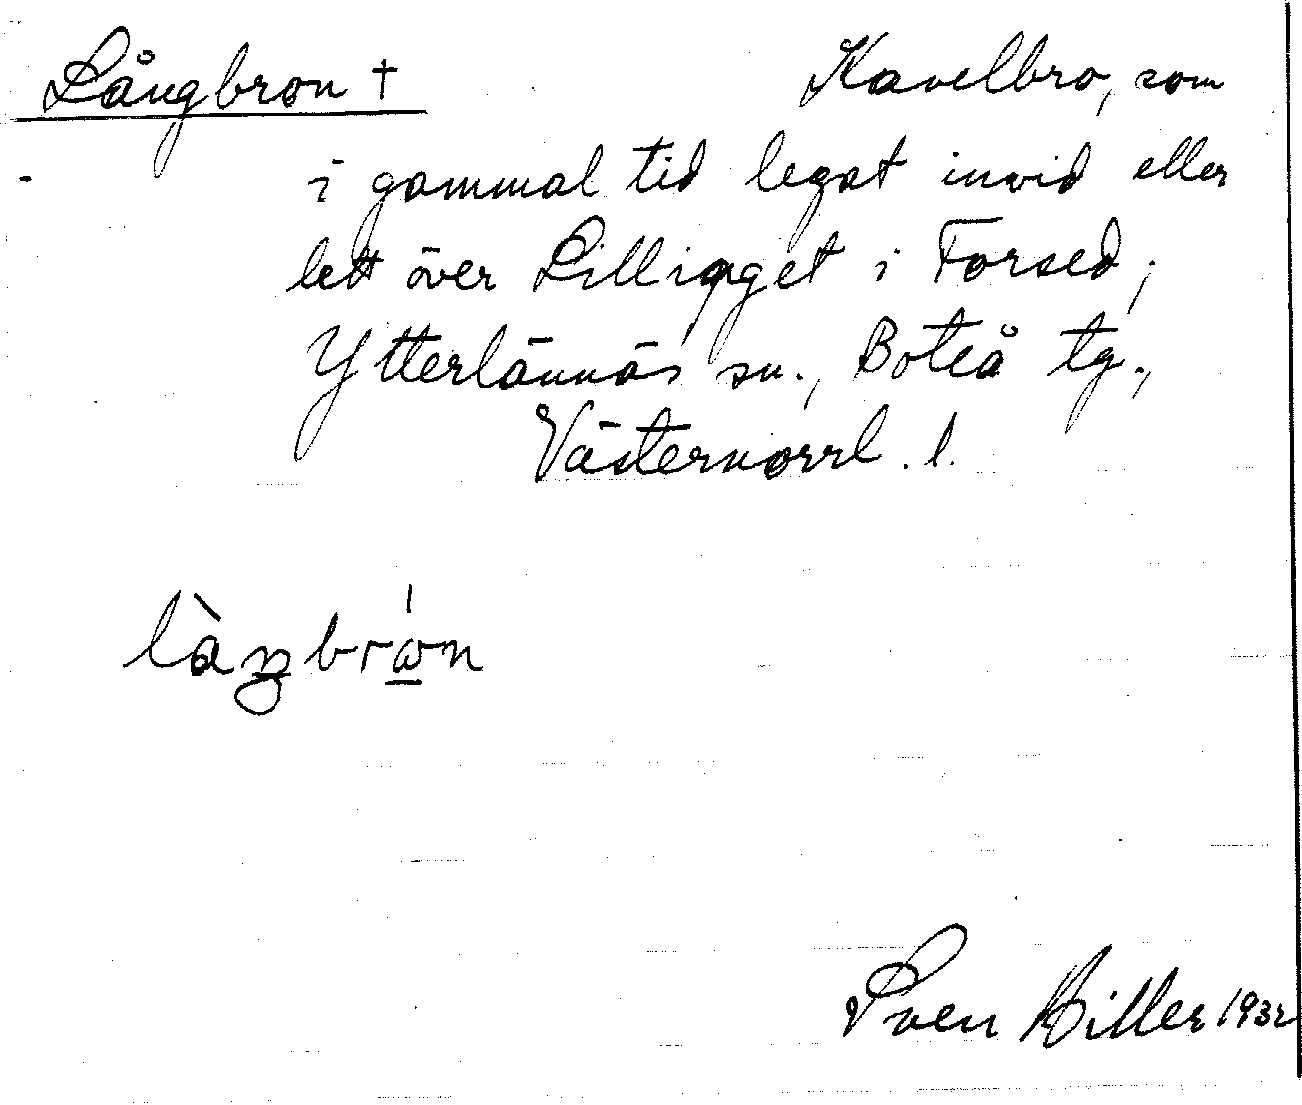 Långbron † Kavelbro, som
i gammal tid legat invid eller
lett över Lilligget i Forsed,
Ytterlännäs sn., Boteå tg.,
Västernorrl. l.
làŋbrón
Sven Hiller 1932